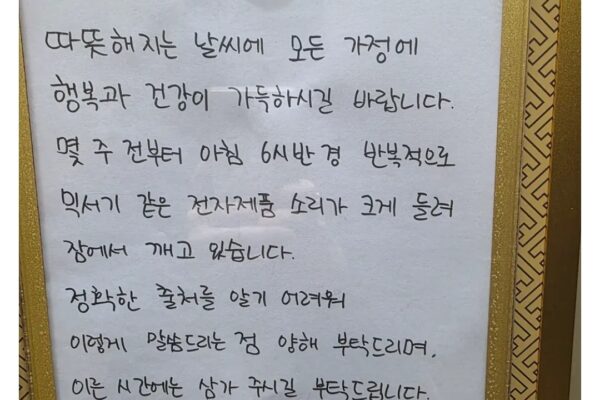 따뜻해지는 날씨에 모든 가정에
행복과 건강이 가득하시길 바랍니다.
몇 주 전부터 아침 6시반 경 반복적으로
믹서기 같은 전자제품 소리가 크게 들려
잠에서 깨고 있습니다.
정확한 출처를 알기 어려워
이렇게 말씀드리는 점 양해 부탁드리며,
이른 시간에는 삼가 주시길 부탁드립니다.